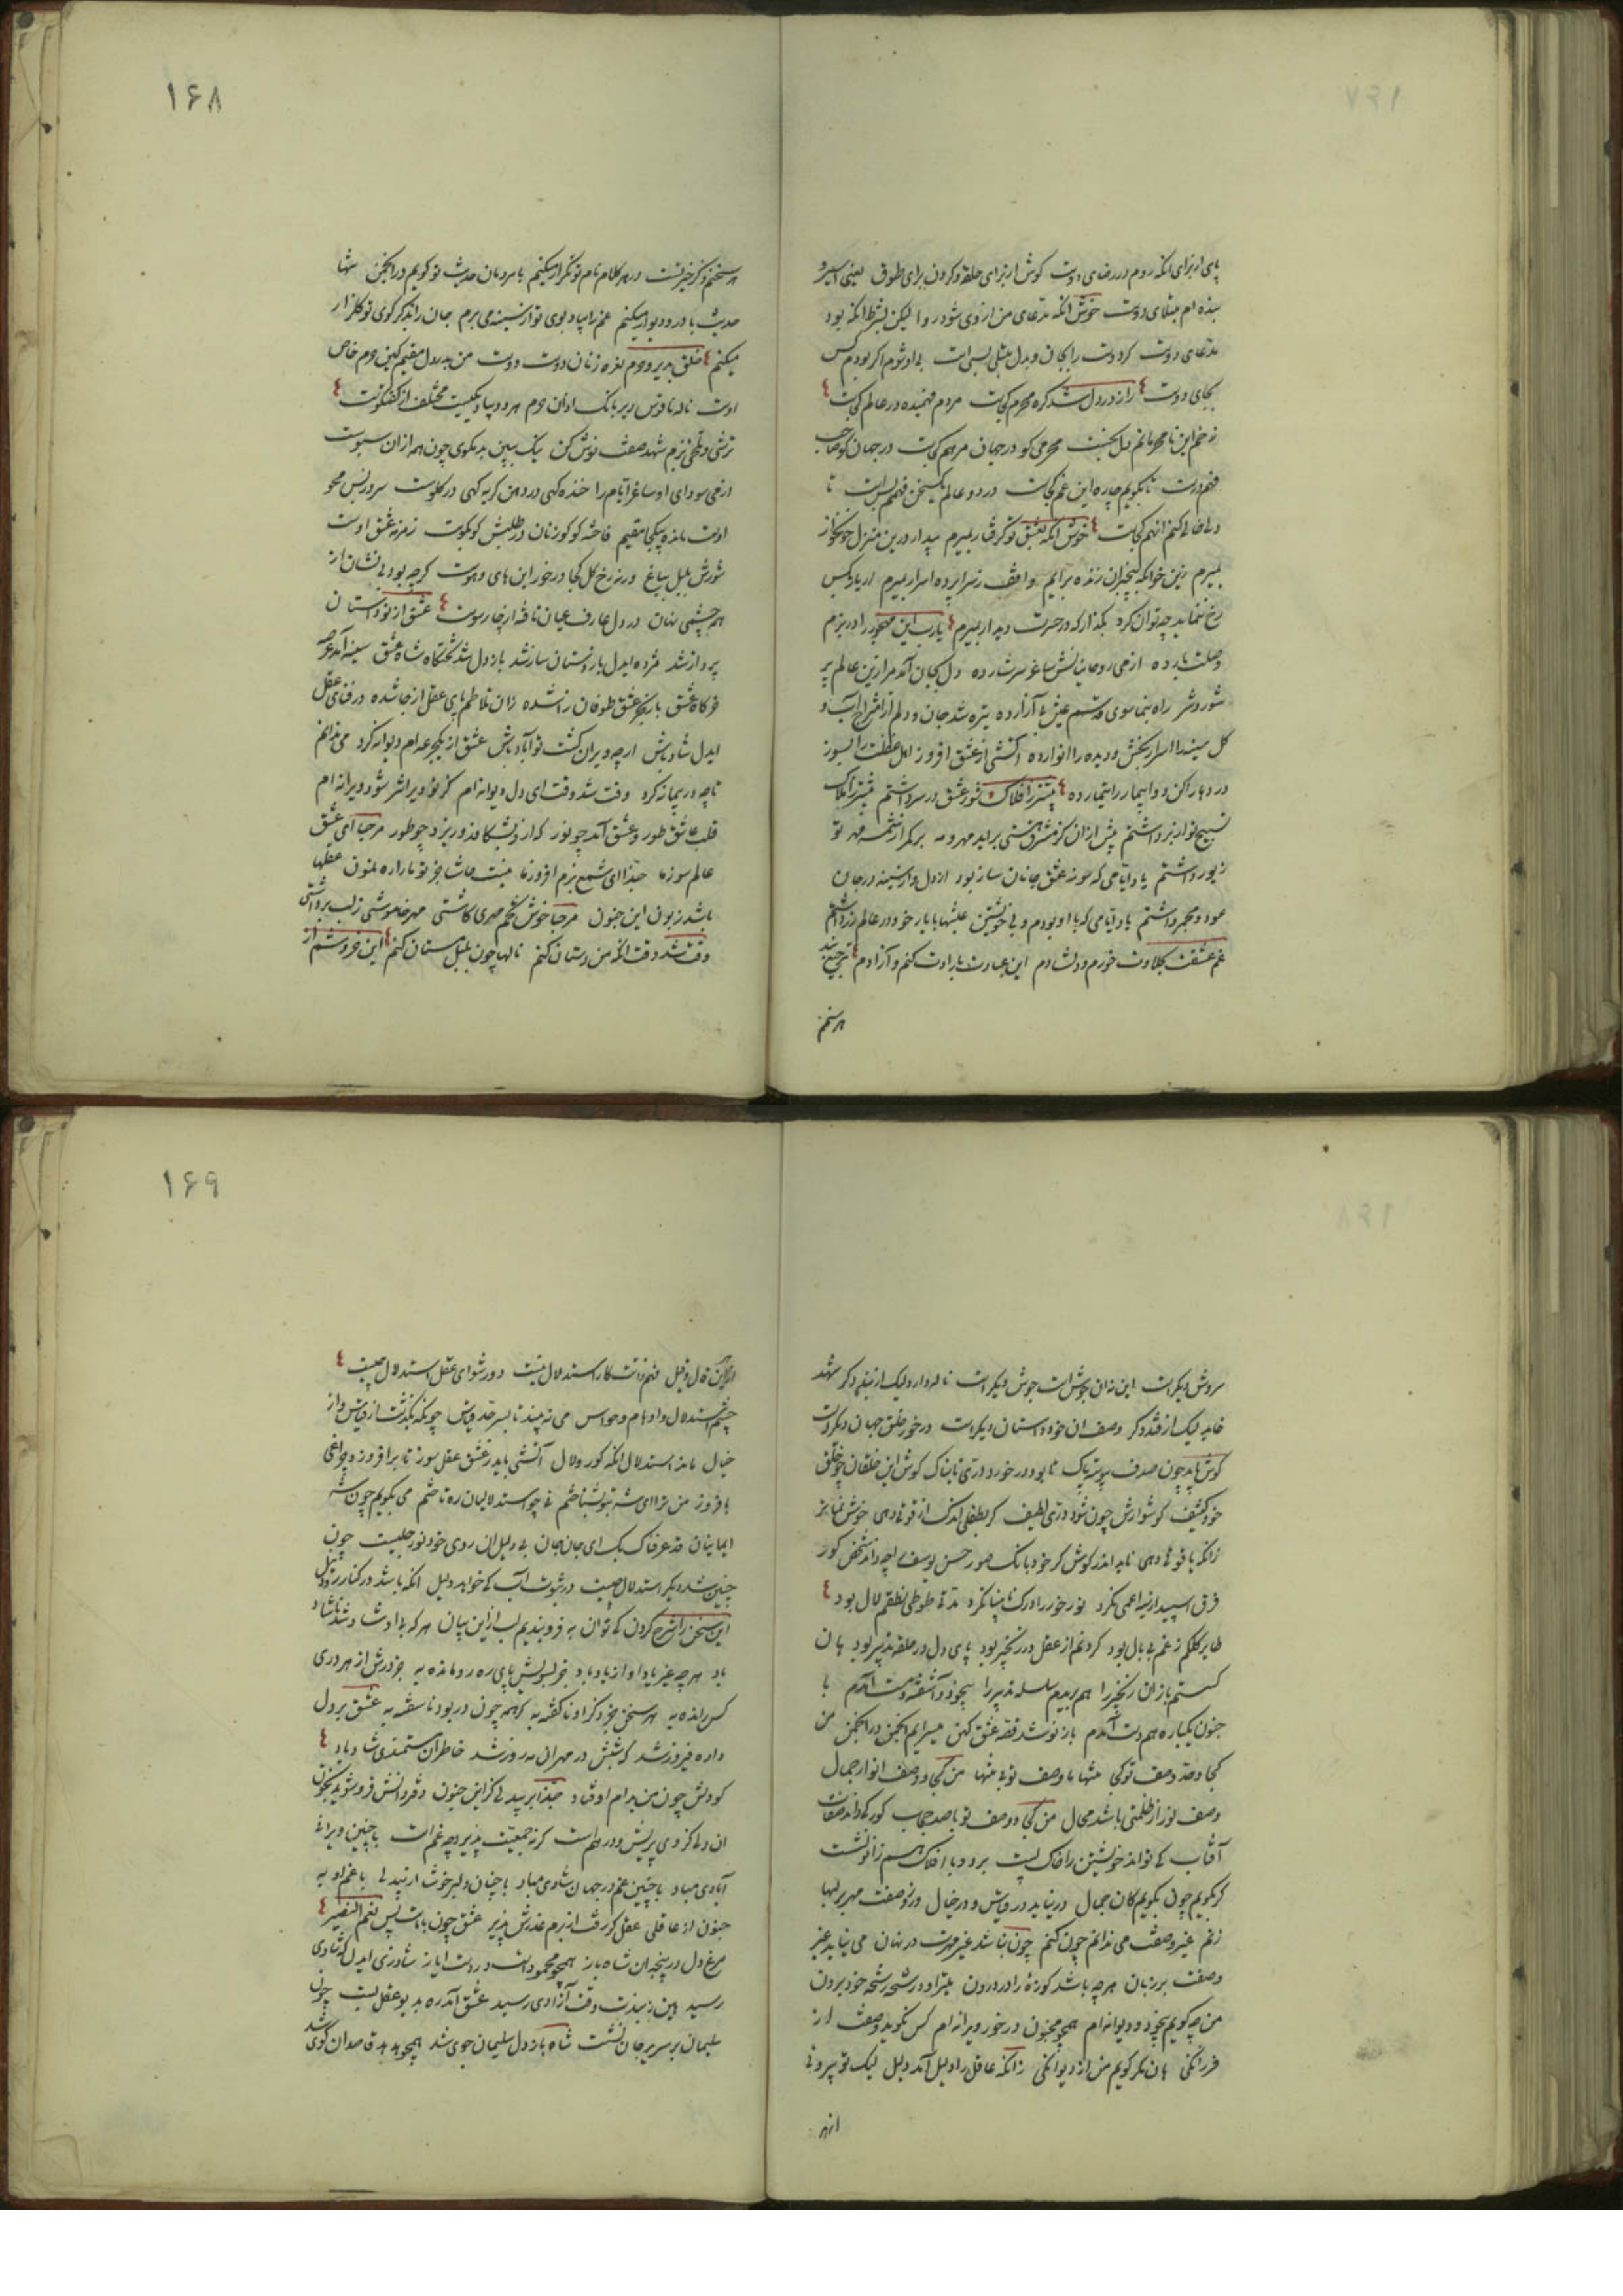 ۱۶۸
پای از برای انکه روم در رضای دوست کوش از برای حلقه و کردن برای طوق یعنی اسیر و
بنده ام مبتلای دوست خوش انکه مدعای من از وی شود روا لیکن بشرط انکه بود
مدعای دوست کر دوست را بجان و بدل مثلی بسی است
بجای دوست راز در دل شد کره محرم کجاست مردم فهمیده در عالم کجاست
زخم این نامحرمانم دل بخست محرمی کو در جهان مرهم کجاست در جهان کو صاحب
فهم درست تا بکویم چاره این غم کجاست در دو عالم یکسخن فهمم بس است تا
دل خالی کنم انهم کجاست خوش انکه بعشق تو کرفتار بمیرم بیدار درین منزل خونخوار
بمیرم زین خوابکه بیخبران زنده برآیم واقف ز سراپرده اسرار بمیرم ار یار بکس
رخ ننماید چه توان کرد بکذار که در حسرت دیدار بمیرم یارب این مهجور را در بزم
وصلت بار ده از می روحانیانش ساغر سرشار ده دل بجان آمد مرا زین عالم پر
شور و شر راه بنما سوی قدسم عیش بی آزار ده تیره شد جان و دلم از امتزاج آب و
کل سینه را اسرار بخش و دیده را انوار ده آتشی از عشق افروز اهل غفلت را بسوز
درد ما را کن دوا بیمار را تیمار ده پیشتر ز افلاک شور عشق در سر داشتم پیشتر ز املاک
تسبیح تو از بر داشتم پیش از ان کز مشرق هستی براید مهر و مه بر کمر از تو مهر تو
زیور داشتم یاد ایامی که سوز عشق جانان ساز بود از دل و از سینه در جان
عود و مجمر داشتم یاد ایامی که با او بودم و بی خویشتن عیشها با یار خود در عالم زر داشتم
غم عشقت بحلاوت خورم و دلشادم این عبارت بارادت کنم و آزادم ترجیع بند
هر سخن
هر سخن کز خبر تست در هر کلام نام تو تکرار میکنم با مردمان حدیث تو کویم در انجمن تنها
حدیث با در و دیوار میکنم غم را بیاد بوی تو از سینه می برم جان را بذکر کوی تو کلزار
میکنم خلق بدیر و حرم نعره زنان دوست دوست من بدر دل مقیم کین حرم خاص
اوست ناله ناقوس دیر بانک اذان حرم هر دو بیاد یکیست مختلف از کفتکوست
ترشی و تلخی زبزم شهد صفت نوش کن نیک ببین بد مکوی چون همه از ان سبوست
از می سودای او ساغر ایام را خنده کهی در دهن کریه کهی در کلوست سرو ز بس محو
اوست مانده بیکجا مقیم فاخته کو کو زنان در طلبش کو بکوست زمزمه عشق اوست
شورش بلبل بباغ ورنه رخ کل کجا در خور این های و هوست کرچه بود بی نشان از
همه چشمی نهان در دل عارف عیان نافه از چار سوست عشق از نو داستان
پرداز شد مژده ایدل باز دستان ساز شد باز دل شد تختکاه شاه عشق سینه آمد عرصه
خرکاه عشق باز بحر عشق طوفان زا شده زان تلاطم پای عقل از جا شده در فنای عقل
ایدل شاد باش ار چه ویران کشت نو آباد باش عشق از یکجرعه ام دیوانه کرد می ندانم
تا چه در پیمانه کرد وقت شد وقت ای دل دیوانه ام کز تو ویرانتر شود ویرانه ام
قلب عاشق طور و عشق آمد چو نور که از و بشکافد و ریزد چو طور مرحبا ای عشق
عالم سوز ما حبذا ای شمع بزم افروز ما نیست حاشا جز تو ما را رهنمون عقلها
باشد زبون این جنون مرحبا خوش تخم مهری کاشتی مهر خاموشی ز لب برداشتی
وقت شد وقت انکه من دستان کنم نالها چون بلبل مستان کنم این خروشم از
۱۶۹
سروش دیکر است این نه ان جوش است جوش دیکر است ناله دارد لیک از نیی دکر شهد
خاید لیک از قند دکر وصف ان خود داستان دیکر است در خور خلق جهان دیکر است
کوش باید چون صدف پر سر پاک تا بود در خورد دری تابناک کوش این خلقان چو خلق
خود کثیف کوشوارش چون شود دری لطیف کر بطفلی اندک از قوت دهی خوش نما تر
زانکه یاقوتی دهی ناید اندر کوش کر خود بانک صور حسن یوسف را چه داند شخص کور
فرق اسپید از سیه اعمی نکرد نور خور را درک نابینا نکرد مدتی طوطی نطقم لال بود
طایر کلکم ز غم بی بال بود کردنم از عقل در زنجیر بود پای دل در حلقه تدبیر بود هان
کسستم باز ان زنجیر را هم بریدم سلسله تدبیر را بیخود و آشفته و مست آمدم با
جنون یکباره همدست آمدم باز نو شد قصه عشق کهن میسرایم انجمن در انجمن من
کجا و حد وصف تو کجا منتها با وصف تو بی منتها من کجا و وصف انوار جمال
وصف نور از ظلمتی باشد محال من کجا و وصف تو با صد حجاب کور کی داند صفات
آفتاب کی تواند خویشتن را خاک پست برد و با افلاک هم زانو نشست
کر بکویم چون بکویم کان جمال در نیاید در قیاس و در خیال ور ز وصفت مهر بر لبها
زنم غیر وصفت می ندانم چون کنم چون نباشد غیر مهرت در نهان می نیاید غیر
وصفت بر زبان هر چه باشد کوزه را در درون میتراود رشحه رشحه خود برون
من چه کویم بیخود و دیوانه ام همچو مجنون در خور ویرانه ام کس نکوید وصفت از
فرزانکی هان مکر کویم من از دیوانکی زانکه عاقل را دلیل آمد دلیل لیک تو بیرونی
از هر
از هر این قال و قیل فهم ذاتت کار استدلال نیست دور شو ای عقل استدلال چیست
چشم استدلال و اوهام و حواس می نه بیند تا بسر حد قیاس چونکه بگذشت از قیاس و از
خیال ماند استدلال انکه کور و لال آتشی باید ز عشق عقل سوز تا برافروزد چراغی
بافروز من ترا ای شه بتو بشناختم نی چو استدلالیان ره تاختم می بکویم چون شه
ایمانیان قد عرفناک بک ای جان جان بی دلیل ان روی خود نور جلیست چون
چنین شد دیکر استدلال چیست در ثبوت آب کی خواهد دلیل انکه باشد در کنار رود نیل
این سخن را شرح کردن کی توان به فرو بندیم لب از این بیان هر که بی او شاد شد ناشاد
باد هر چه غیر یاد او از یاد باد جز بسویش پای ره رو مانده به جز درش از هر دری
کس رانده به هر سخن جز ذکر او ناکفته به کر همه چون در بود ناسفته به عشق بر دل
داده فیروز شد که شبش در مهر ان مه روز شد خاطر ان مستمندی شاد باد
کو دلش چون من بدام اوفتاد حبذا بر بیدلی کز این جنون دفتر دانش فرو شوید بخون
ان دلی کز وی پریش و درهم است کر نه جمعیت پذیرد چه غم است با چنین ویرانی
آبادی مباد با چنین غم در جهان شادی مباد با چنان دلبر خوشست ار بیدلی با غم او به
جنون از عاقلی عقل کر رفت از برم عذرش پذیر عشق چون با ماست پس نعم النصیر
مرغ دل در پنجه ان شاه باز همچو محمود است در دست ایاز شاد زی ایدل که شادی
رسید هین ز بندت وقت آزادی رسید عشق آمد ره بدیو عقل بست چون
سلیمان بر سریر جان نشست شاه باز دل سلیمان جوی شد همچو هدهد قاصد ان کوی شد